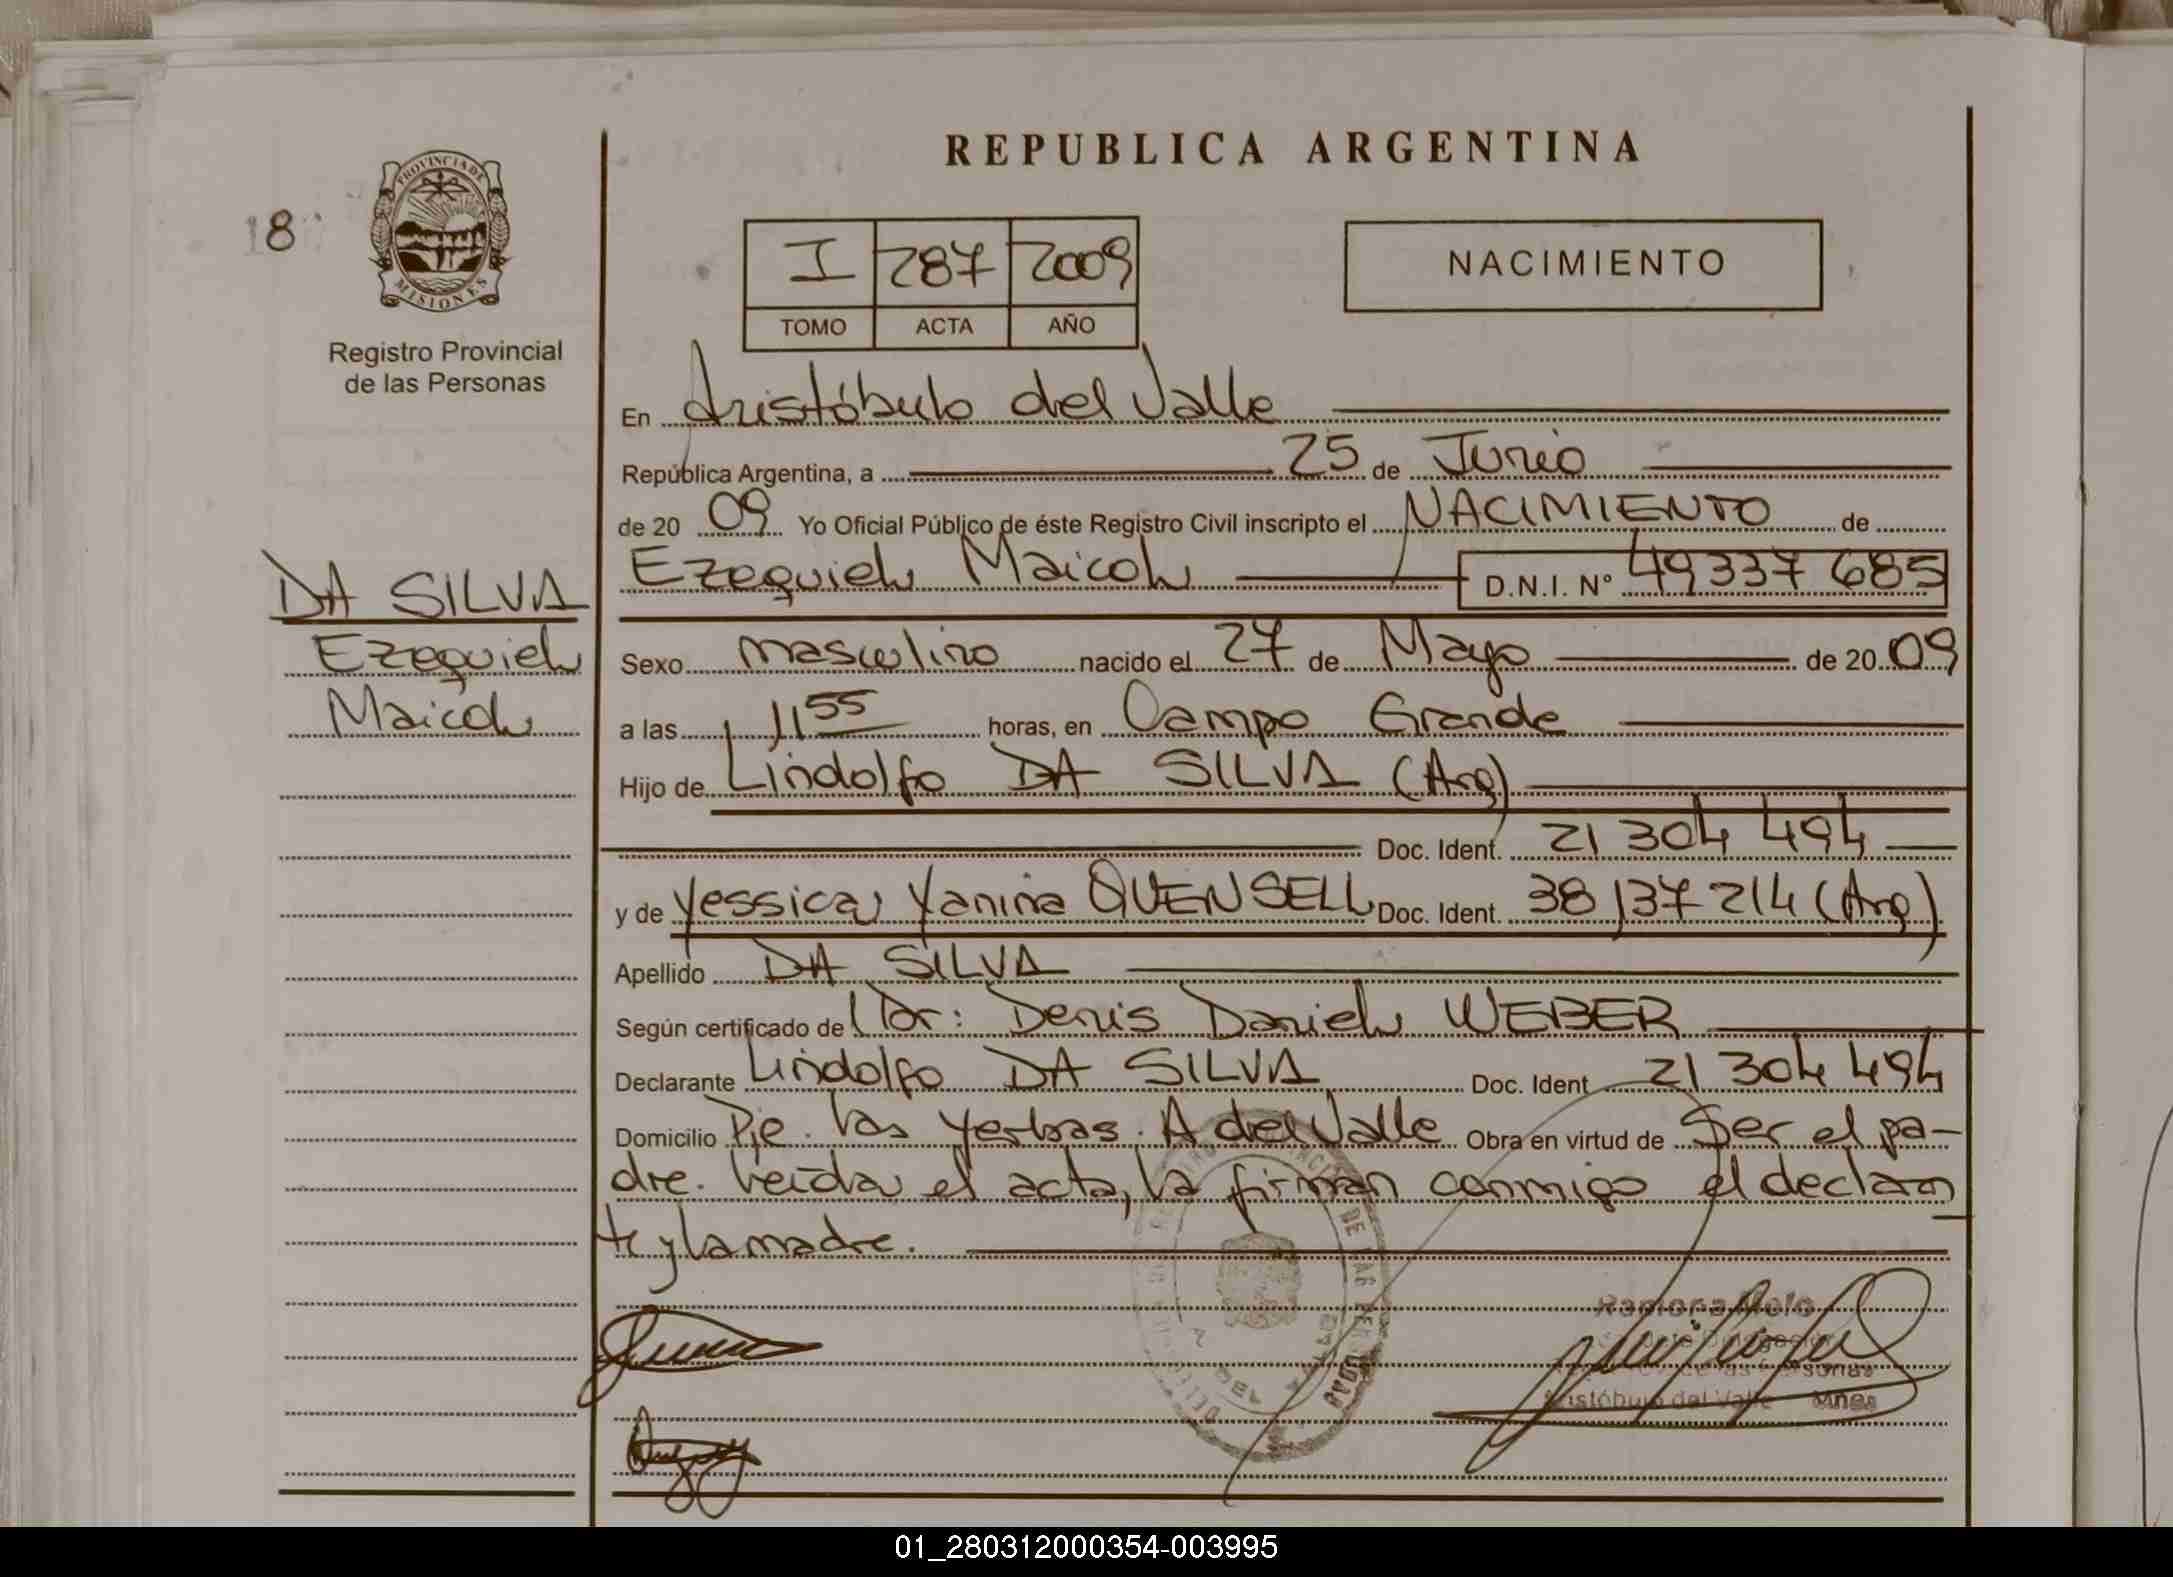 REPUBLICA ARGENTINA
18
PROVINCIA DE
MISIONES
Registro Provincial
de las Personas
I 287 2009
TOMO ACTA AÑO
NACIMIENTO
En Aristóbulo del Valle
República Argentina, a 25 de Junio
de 20 09 Yo Oficial Público de éste Registro Civil inscripto el NACIMIENTO de
Ezequiel Maicol D.N.I. N° 49337 685
DA SILVA
Ezequiel
Maicol
Sexo masculino nacido el 27 de Mayo de 20 09
a las 11 55 horas, en Campo Grande
Hijo de Lindolfo DA SILVA (Arg)
Doc. Ident. 21 304 494
y de Yessica Yanina QUENSELL Doc. Ident. 38 137 214 (Arg)
Apellido DA SILVA
Según certificado de Dr: Denis Daniel WEBER
Declarante Lindolfo DA SILVA Doc. Ident 21 304 494
Domicilio Pje. Las Yerbas. A del Valle Obra en virtud de Ser el pa-
dre. Leída el acta, la firman conmigo el declaran
te y la madre.
Ramona Melo
Aristóbulo del Valle Mnes
01_280312000354-003995